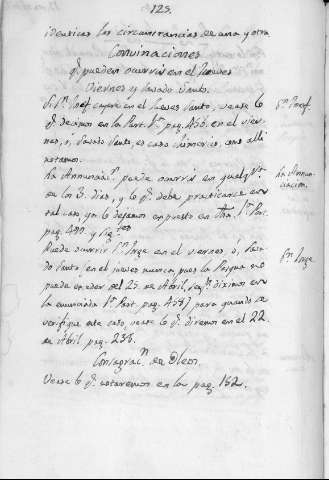 123.
identicas las circunstancias de una y otra
Convinaciones
q.e pueden ocurrir en el Jueves
Viernes y Savado Santo.
Si S.n Josef cayere en el Jueves Santo, vease lo
q.e decimos en la Part. 1.a pag. 456. en el vier-
nes, o, Savado Santo, es caso chimerico, como alli
notamos.
S.n Josef.
La Annunciac.n puede ocurrir en qualq.r
de los 3. dias, y lo q.e debe practicarse en
tal caso, ya lo dejamos expuesto en dha. 1.a Part.
pag. 490. y sig.tes
La Annun-
ciacion.
Puede ocurrir S.n Jorge en el viernes, ó, Sava-
do Santo, en el jueves nunca, pues la Pasqua no
puede exceder del 25. de Abril, seg.n diximos en
la enunciada 1.a Part. pag. 459) para quando se
verifique este caso, vease lo q.e diremos en el 22
de Abril pag. 238.
S.n Jorge
Consagrac.n de Oleos.
Vease lo q.e notaremos en la pag. 162.